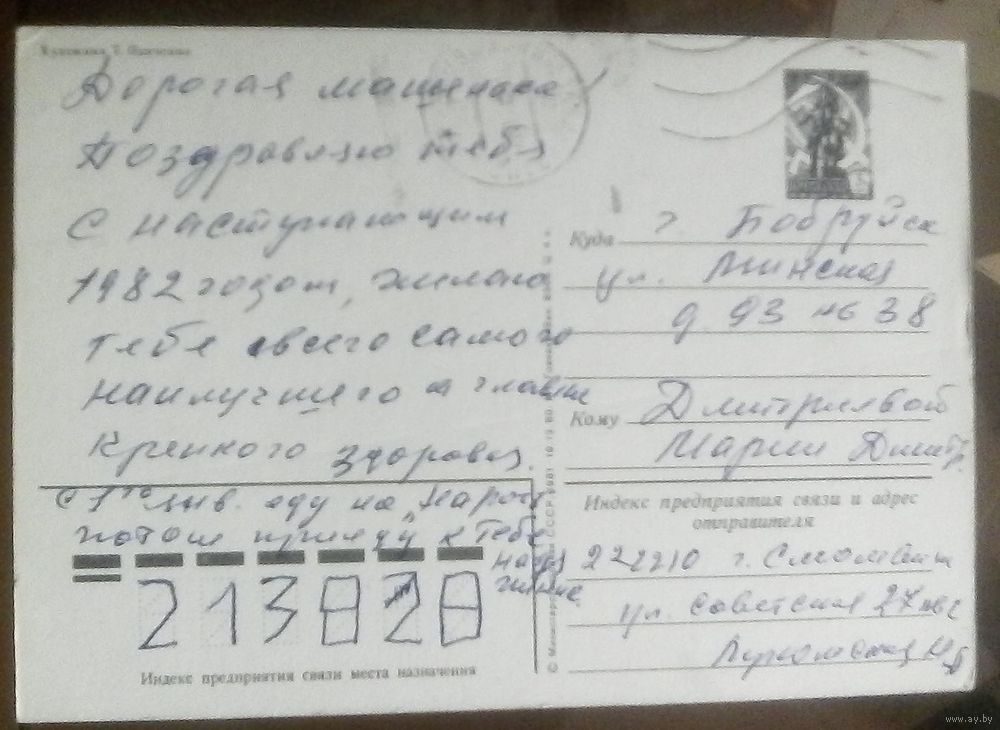 Художник Т. Панченко
Дорогая мамочка!
Поздравляю тебя
с наступающим
1982 годом, желаю
тебе всего самого
наилучшего а главное
крепкого здоровья.
С 1го янв. еду на "Нарочь"
потом приеду к Тебе
213828
Индекс предприятия связи места назначения
Куда г. Бобруйск
ул. Минская
д 93 кв 38
Кому Дмитриевой
Марии Дмитр.
Индекс предприятия связи и адрес
отправителя
222210 г. Смолевичи
ул. Советская 27 кв 2
www.ay.by